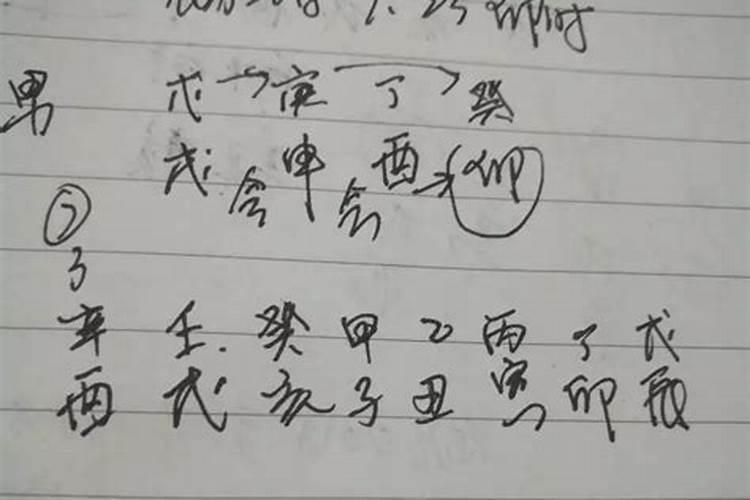 卯时
男 戊 庚 丁 癸
戌 会 申 会 酉 卯
②
3
辛 壬 癸 甲 乙 丙 丁 戊
酉 戌 亥 子 丑 寅 卯 辰